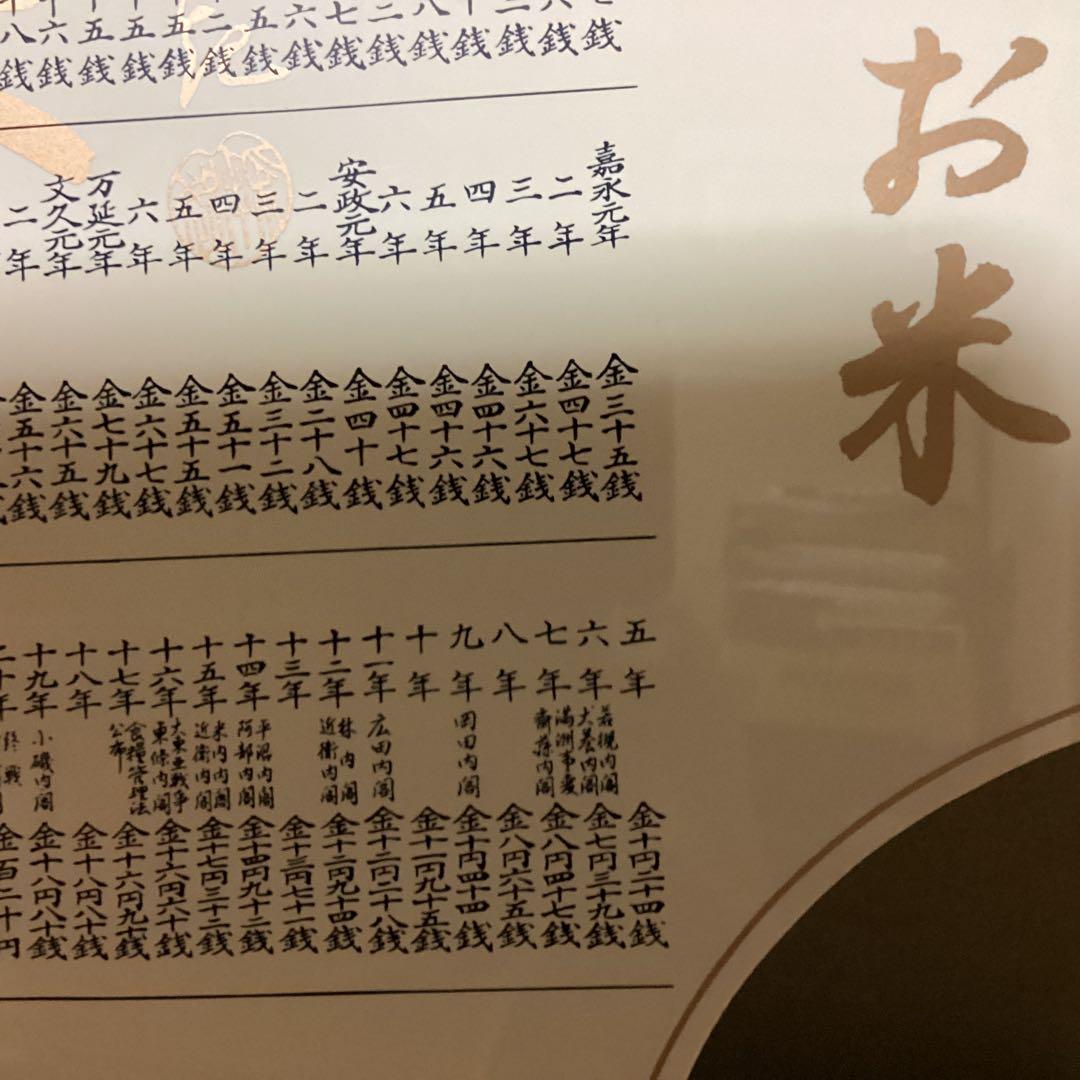 お米
銭
銭
銭
銭
八銭
二銭
七銭
六銭
五銭
二銭
五銭
五銭
五銭
六銭
八銭
嘉永元年 金三十五銭
二年 金四十七銭
三年 金六十七銭
四年 金四十六銭
五年 金四十六銭
六年 金四十七銭
安政元年 金四十銭
二年 金二十八銭
三年 金三十二銭
四年 金五十一銭
五年 金五十五銭
六年 金六十七銭
万延元年 金七十九銭
文久元年 金六十五銭
二年 金五十六銭
五年 金十円二十四銭
六年 若槻内閣 犬養内閣 金七円三十九銭
七年 満洲事変 斎藤内閣 金八円四十七銭
八年 金八円六十五銭
九年 岡田内閣 金十円四十四銭
十年 金十一円九十五銭
十一年 広田内閣 金十二円二十八銭
十二年 林内閣 近衛内閣 金十二円九十四銭
十三年 金十三円七十一銭
十四年 平沼内閣 阿部内閣 金十四円九十二銭
十五年 米内内閣 近衛内閣 金十七円三十二銭
十六年 大東亜戦争 東條内閣 金十六円六十銭
十七年 食糧管理法公布 金十六円九十銭
十八年 金十八円八十銭
十九年 小磯内閣 金十八円八十銭
二十年 終戦 金百二十円